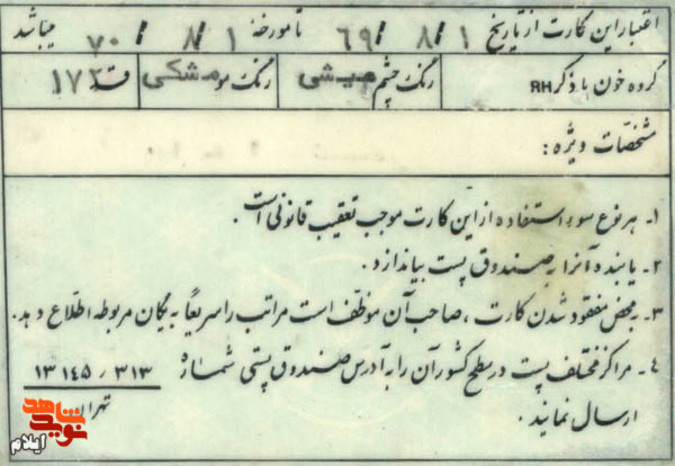 اعتبار این کارت از تاریخ ۱ / ۸ / ۶۹ تا مورخهٔ ۱ / ۸ / ۷۰ میباشد
گروه خون با ذکر RH رنگ چشم میشی رنگ مو مشکی قد ۱۷۲
مشخصات ویژه :
۱- هر نوع سوء استفاده از این کارت موجب تعقیب قانونی است .
۲- یابنده آنرا به صندوق پست بیاندازد .
۳- به محض مفقود شدن کارت ، صاحب آن موظف است مراتب را سریعاً به یگان مربوطه اطلاع دهد .
۴- مراکز مختلف پست در سطح کشور آن را به آدرس صندوق پستی شماره ۳۱۳ / ۱۳۱۴۵
تهران
ارسال نمایند .
نوید شاهد
ایلام